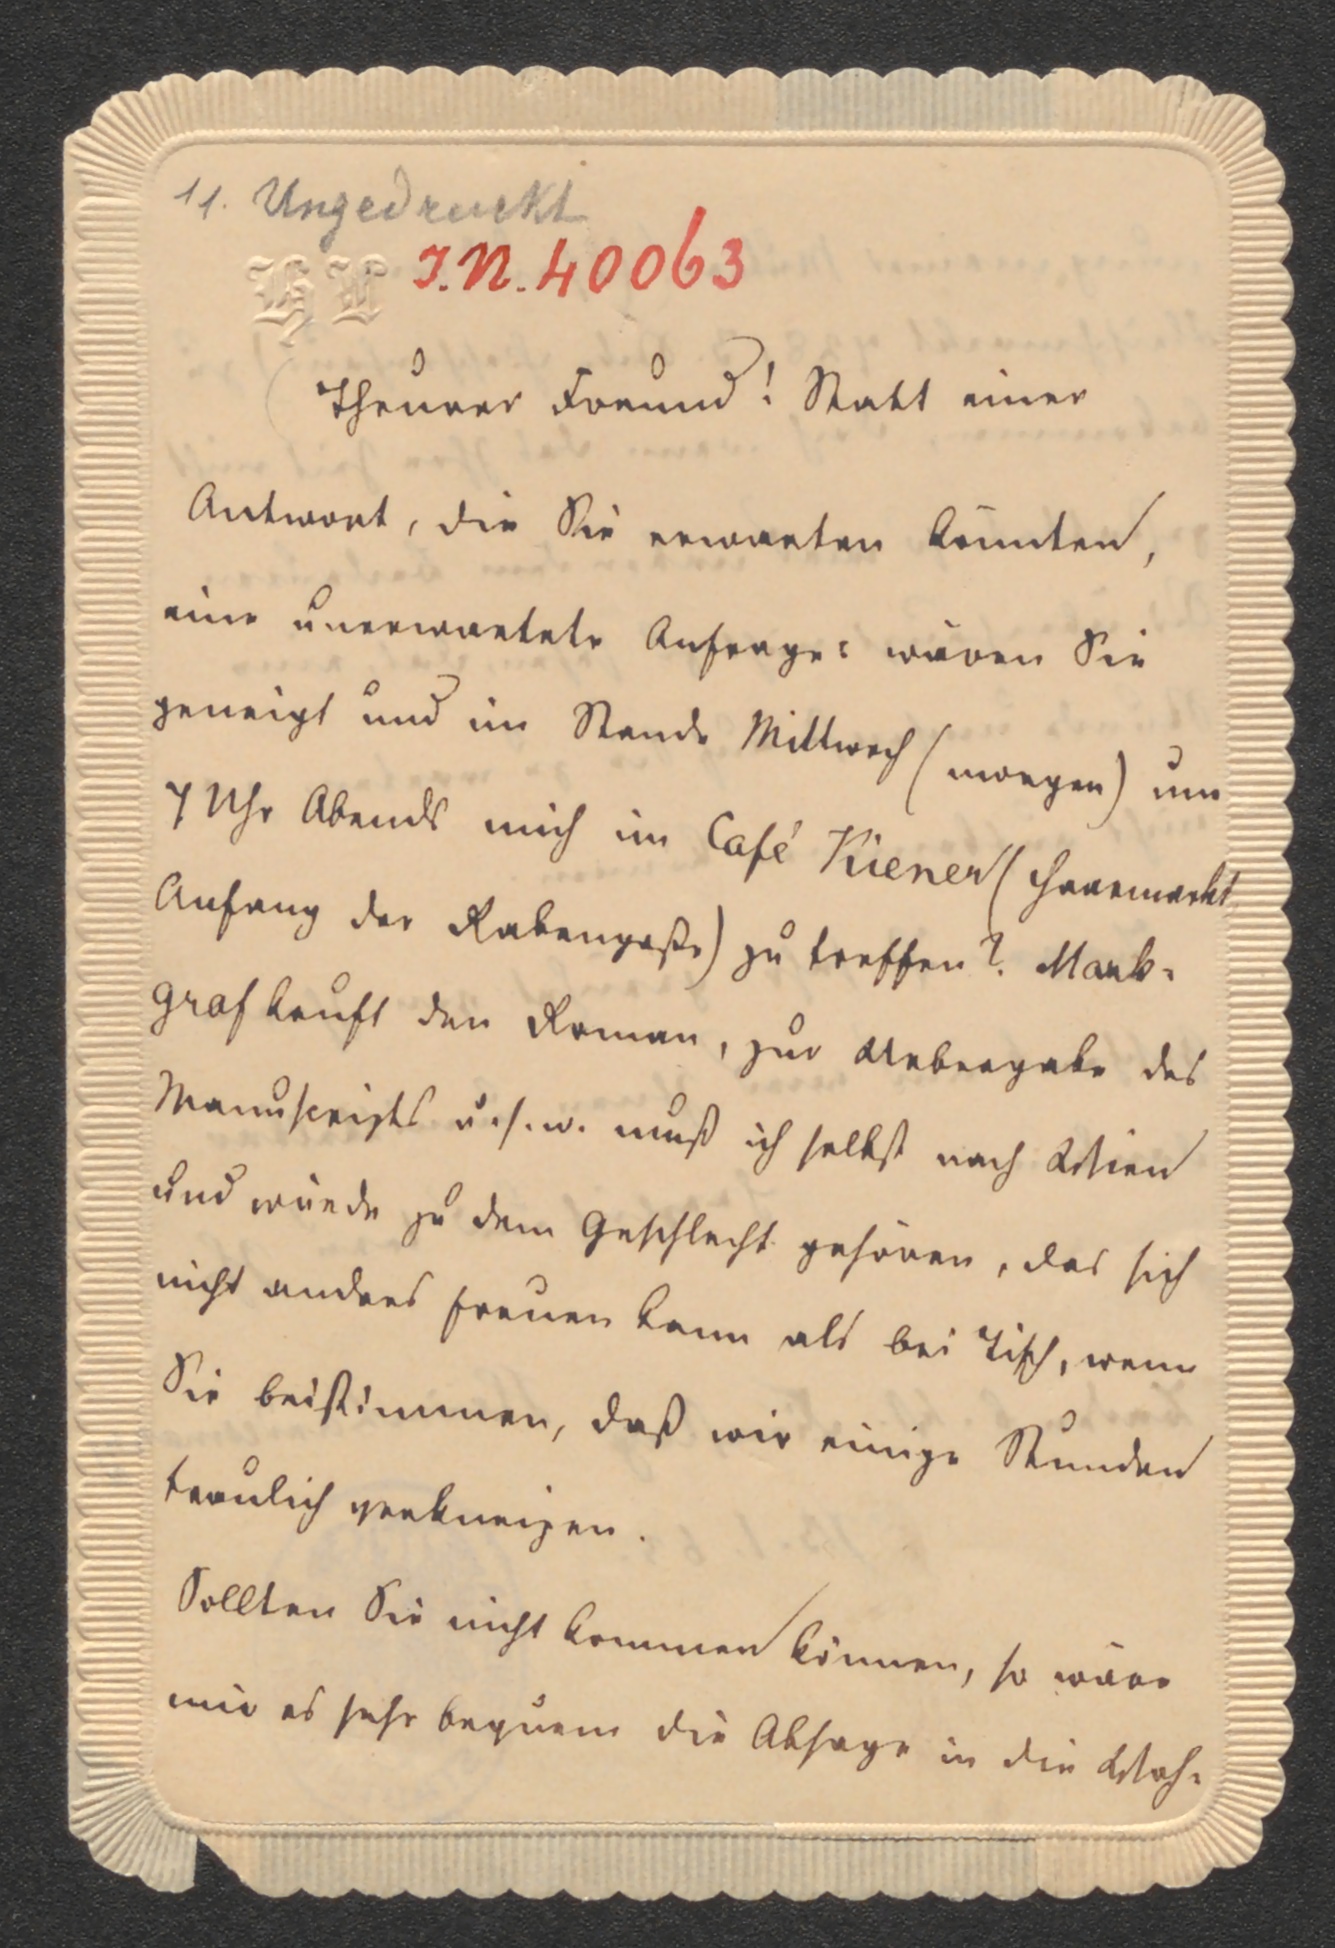 11. Ungedruckt
HL J.N. 40063
Theurer Freund! Statt einer
Antwort, die Sie erwarten könnten,
eine unerwartete Anfrage: wären Sie
geneigt und im Stande Mittwoch (morgen) um
7 Uhr Abends mich im Café Kiener (Haarmarkt
Anfang der Rabengaße) zu treffen? Mark-
graf kauft den Roman, zur Uebergabe des
Manuscripts u.s.w. muß ich selbst nach Wien
und würde zu dem Geschlecht gehören, das sich
nicht anders freuen kann als bei Tisch, wenn
Sie beistimmen, daß wir einige Stunden
traulich verkneipen.
Sollten Sie nicht kommen können, so wäre
mir es sehr bequem die Absage in die Woh-